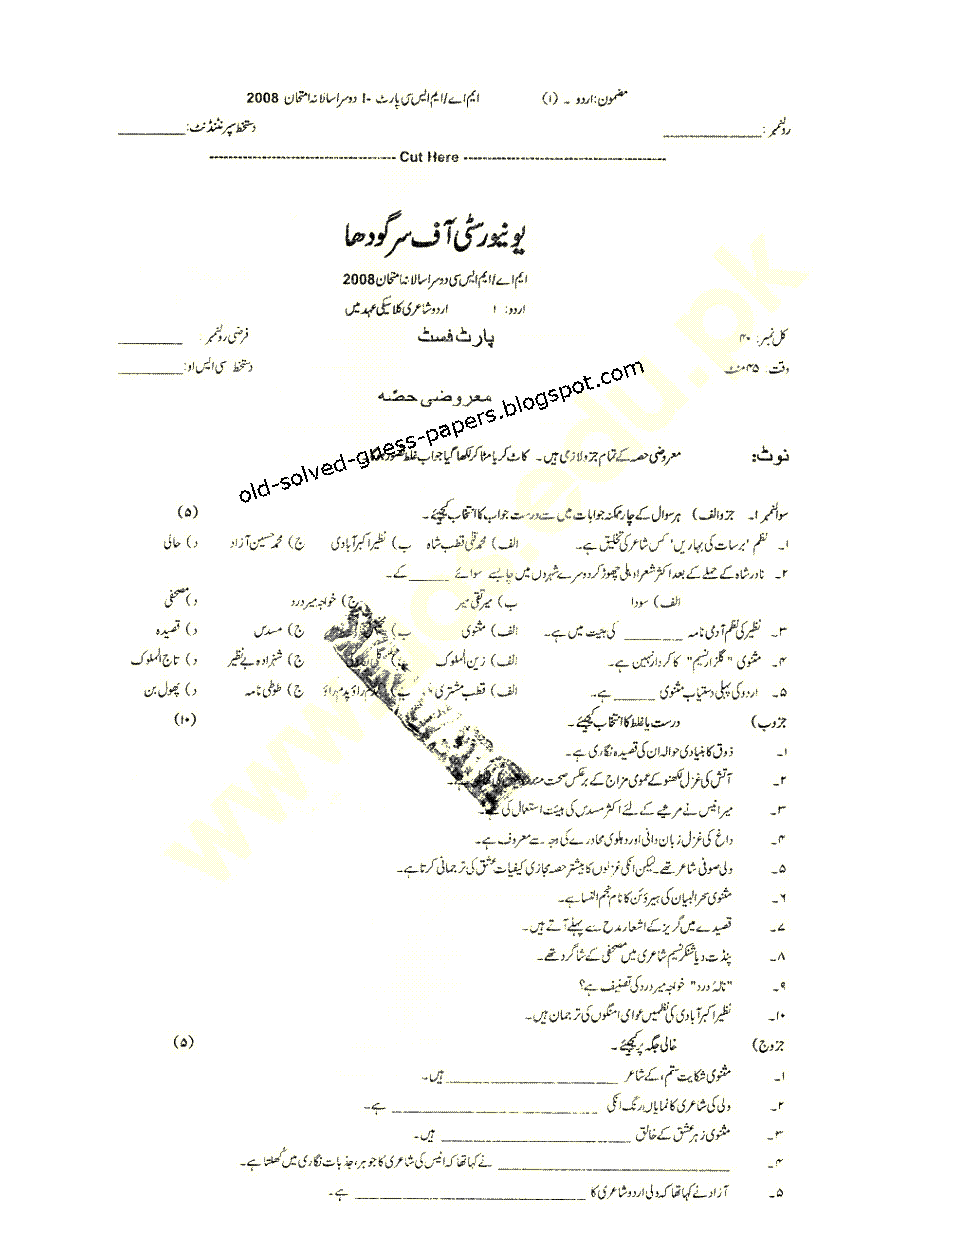 مضمون: اردو ۔ (۱) ایم اے/ایم ایس سی پارٹ -I دوسرا سالانہ امتحان 2008
رولنمبر: __________ دستخط سپرنٹنڈنٹ: __________
---------- Cut Here ----------
یونیورسٹی آف سرگودھا
ایم اے/ایم ایس سی دوسرا سالانہ امتحان 2008
اردو: ۱ اردو شاعری کلاسیکی عہد میں
کل نمبر: ۴۰ پارٹ فسٹ فرضی رولنمبر: __________
وقت: ۴۵ منٹ دستخط سی ایس او: __________
معروضی حصّہ
old-solved-guess-papers.blogspot.com
نوٹ: معروضی حصہ کے تمام جزو لازمی ہیں۔ کاٹ کر یا مٹا کر لکھا گیا جواب غلط تصور
سوالنمبر ۱۔ جزو الف) ہر سوال کے چار ممکنہ جوابات میں سے درست جواب کا انتخاب کیجئے۔ (۵)
۱۔ نظم "برسات کی بہاریں" کس شاعر کی تخلیق ہے۔ الف) محمد قلی قطب شاہ ب) نظیر اکبر آبادی ج) محمد حسین آزاد د) حالی
۲۔ نادر شاہ کے حملے کے بعد اکثر شعراء دہلی چھوڑ کر دوسرے شہروں میں جا بسے سوائے ______ کے۔
الف) سودا ب) میر تقی میر ج) خواجہ میر درد د) مصحفی
۳۔ نظیر کی نظم آدمی نامہ ________ کی ہیئت میں ہے۔ الف) مثنوی ب) ج) مسدس د) قصیدہ
۴۔ مثنوی "گلزار نسیم" کا کردار نہیں ہے۔ الف) زین الملوک ب) ج) شہزادہ بے نظیر د) تاج الملوک
۵۔ اردو کی پہلی دستیاب مثنوی ______ ہے۔ الف) قطب مشتری ب) کدم راؤ پدم راؤ ج) طوطی نامہ د) پھول بن
جزو ب) درست یا غلط کا انتخاب کیجئے۔ (۱۰)
۱۔ ذوق کا بنیادی حوالہ ان کی قصیدہ نگاری ہے۔
۲۔ آتش کی غزل لکھنو کے عمومی مزاج کے برعکس صحت مند ہے۔
۳۔ میر انیس نے مرثیے کے لئے اکثر مسدس کی ہیئت استعمال کی ہے۔
۴۔ داغ کی غزل زبان دانی اور دہلوی محاورے کی وجہ سے معروف ہے۔
۵۔ ولی صوفی شاعر تھے۔ لیکن انکی غزلوں کا بیشتر حصہ مجازی کیفیات عشق کی ترجمانی کرتا ہے۔
۶۔ مثنوی سحر البیان کی ہیروئن کا نام نجم النسا ہے۔
۷۔ قصیدے میں گریز کے اشعار مدح سے پہلے آتے ہیں۔
۸۔ پنڈت دیا شنکر نسیم شاعری میں مصحفی کے شاگرد تھے۔
۹۔ "نالۂ درد" خواجہ میر درد کی تصنیف ہے؟
۱۰۔ نظیر اکبر آبادی کی نظمیں عوامی امنگوں کی ترجمان ہیں۔
جزو ج) خالی جگہ پُر کیجئے۔ (۵)
۱۔ مثنوی شکایت ستم، کے شاعر ____________ ہیں۔
۲۔ ولی کی شاعری کا نمایاں رنگ انکی ____________ ہے۔
۳۔ مثنوی زہر عشق کے خالق ____________ ہیں۔
۴۔ ____________ نے کہا تھا کہ انیس کی شاعری کا جوہر، جذبات نگاری میں کُھلتا ہے۔
۵۔ آزاد نے کہا تھا کہ ولی اردو شاعری کا ____________ ہے۔